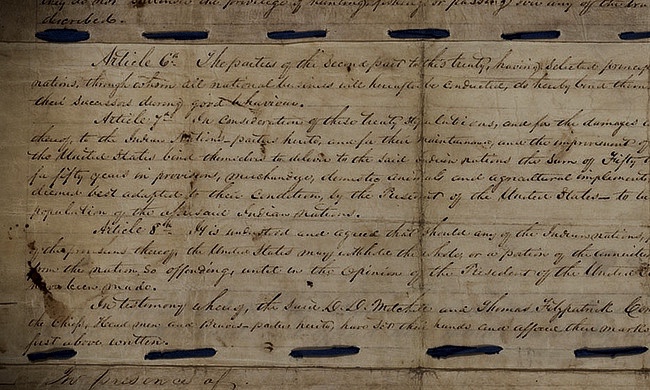 they do not surrender the privilege of hunting, fishing or passing over any of the
described.
Article 6th The parties of the second part to this treaty, having selected
nations, through whom all national business will hereafter be conducted, do hereby bind
their successors during good behaviour.
Article 7th In consideration of these treaty stipulations, and for the damages
thereof, to the Indian Nations—parties hereto, and for their maintenance, and the improvement of
the United States bind themselves to deliver to the said Indian nations the sum of Fifty
for fifty years in provisions, merchandize, domestic animals and agricultural implements
deemed best adapted to their condition, by the President of the United States—to be
population of the aforesaid Indian nations.
Article 8th It is understood and agreed that should any of the Indian nations,
the provisions thereof, the United States may withhold the whole, or a portion of the annuities
from the nation so offending, until in the opinion of the President of the United
have been made.
In testimony whereof, the said D. D. Mitchell and Thomas Fitzpatrick
the Chiefs, Headmen and Braves—parties hereto, have set their hands and affixed their marks
first above written.
In presence of